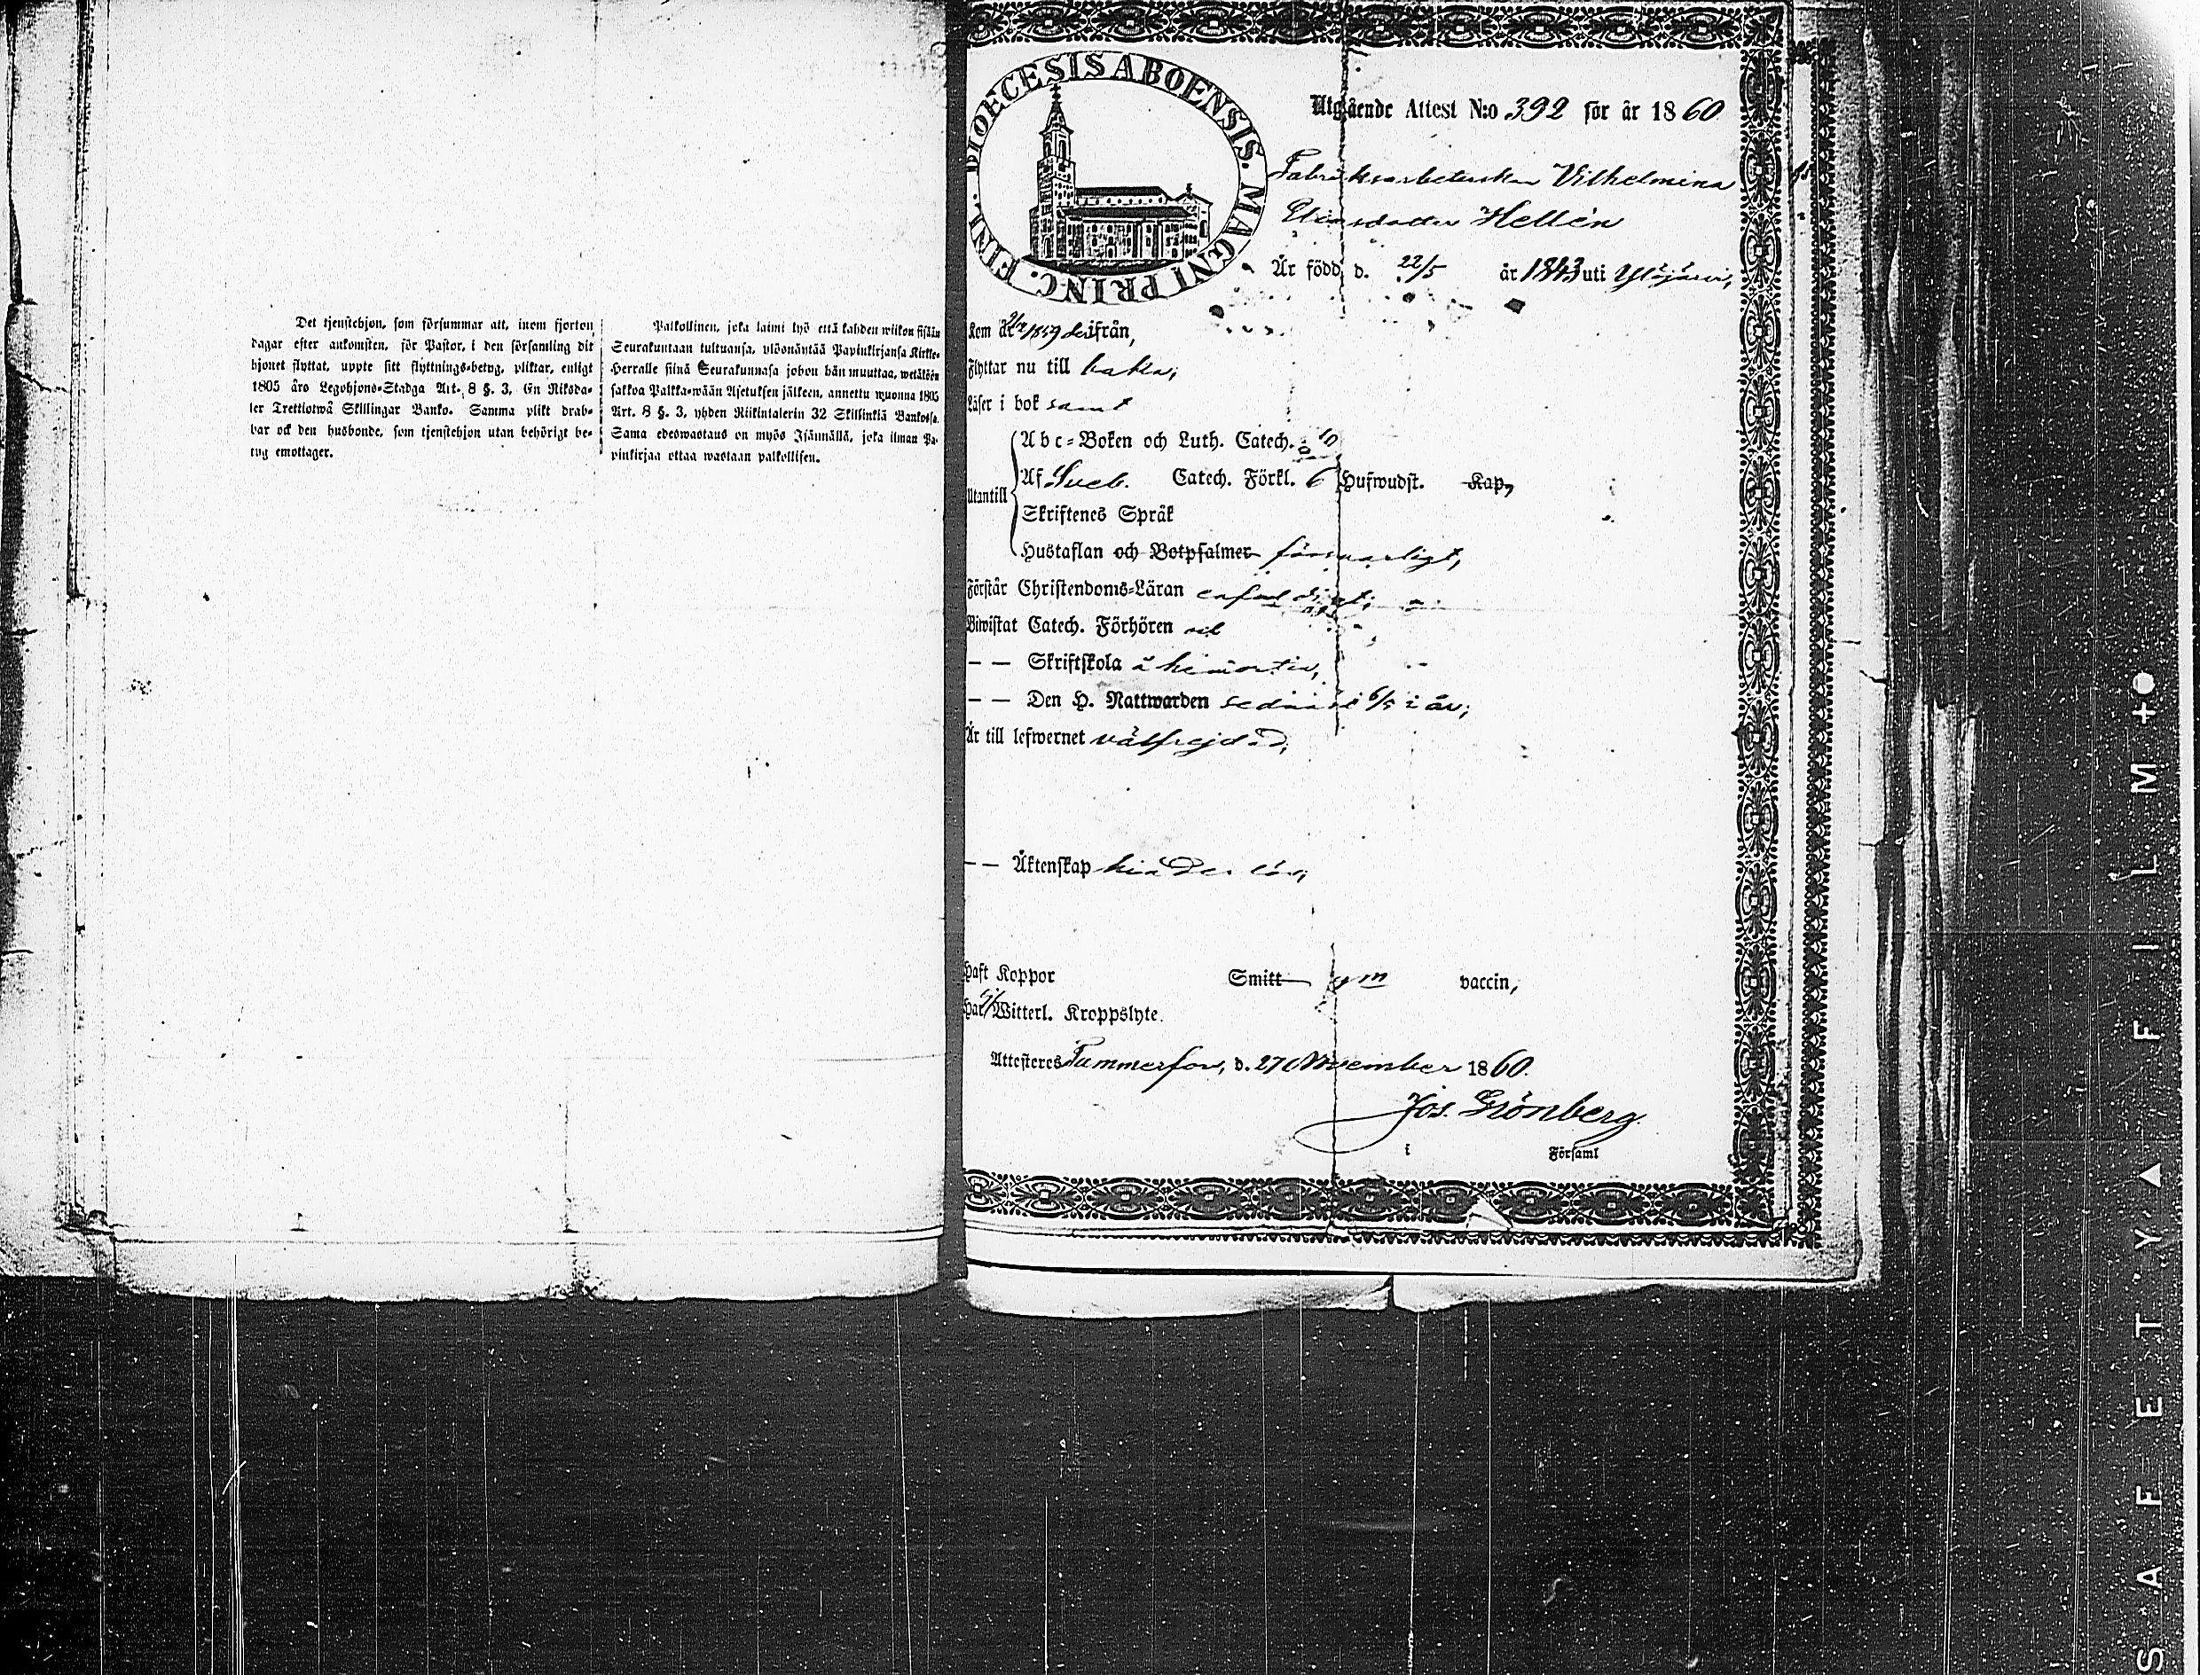 Det tjenstehjon, som försummar att, inom fjorton
dagar efter ankomsten, för Pastor, i den församling dit
hjonet flyttat, uppte sitt flyttnings-betyg, pliktar, enligt
1805 års Legohjons-Stadga Art. 8 §. 3, En Riksda-
ler Trettiotwå Skillingar Banko. Samma plikt drab-
bar ock den husbonde, som tjenstehjon utan behörigt be-
tyg emottager.
Palkollinen, joka laimi lyö että kahden wiikon sisään
Seurakuntaan tultuansa, ylösnäntää Papinkirjansa Kirkko-
Herralle siinä Seurakunnasa johon hän muuttaa, wetälöön
sakkoa Palkka-wään Asetuksen jälkeen, annettu wuonna 1805
Art. 8 §. 3, yhden Riikintalerin 32 Skillinkiä Bankossa.
Sama edeswastaus on myös Isännällä, joka ilman Pa-
pinkirjaa ottaa wastaan palkollisen.
DIOECESIS ABOENSIS. MAGNI PRINC. FINL.
Utgående Attest N:o 392 för år 1860
Fabriksarbeterskan Vilhelmina
Eliasdotter Hellén
Är född d. 22/5 år 1843 uti Ylöjärvi,
Kom år 1859 derifrån,
Flyttar nu till baka,
Läser i bok samt
Utantill
Abc-Boken och Luth. Catech.
Af Sveb. Catech. Förkl. 6 Hufwudst. Kap,
Skriftenes Språk
Hustaflan och Botpsalmer försvarligt,
Förstår Christendoms-Läran enfaldigt,
Biwistat Catech. Förhören och
— — Skriftskola
— — Den H. Nattwarden sednast 6/5 i år,
Är till lefwernet välfrejdad,
— — Äktenskap hinderlös,
Haft Koppor Smitt vaccin,
Har Witterl. Kroppslyte.
Attesteres Tammerfors, d. 27 November 1860.
Jos. Grönberg.
i Församl
SAFETY ▲ FILM + ●